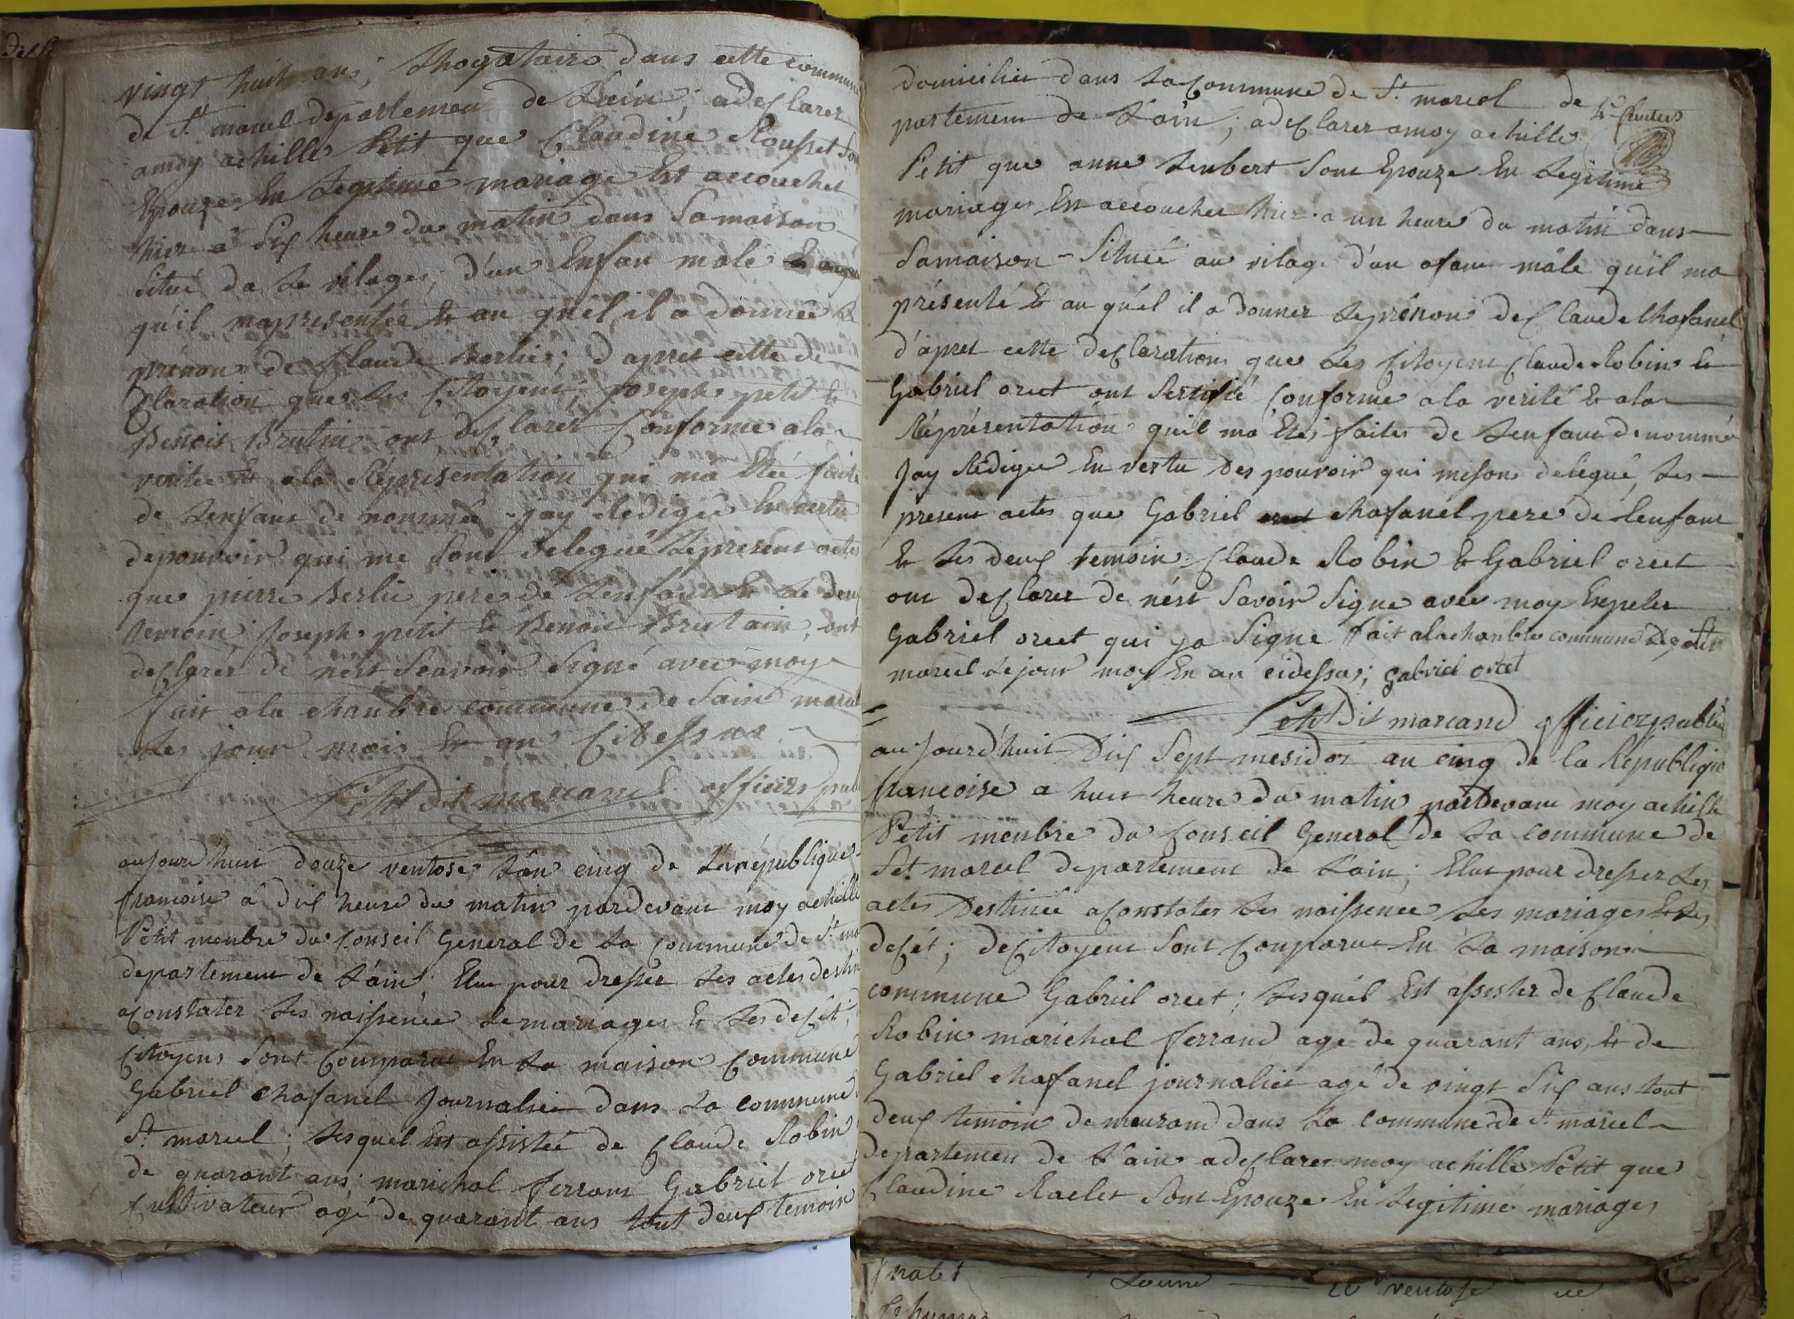 vingt huit ans; dans cette commune
de St marcel departement de Lain; adesclarer
amoy achille Petit que Claudine Rousset Son
Epouze En Legitime mariage Est accouchet
hier a Six heure du matin dans Samaison
Situé da Le vilage, d'un Enfan mâle
qu'il mapresentée Et au qu'el il a donnée Le
prénon de Claude Berlie; d'apret cette de
Claration que Les Citoyent; joseph petit Et
Benoit Brutin ont desclarer Conforme ala
verite Et ala Representation qui ma Eté faite
de Lenfant de nommé jay Redigée En vertu
depouvoir qui me Sont delegué Lepresent acte
que pierre Berlie pere de Lenfant Et Le deux
temoin joseph petit Et Benoit Brutain, ont
desclarer de nést Scavoir Signé avec moy
Fait ala chanbre commune de Saint marcel
Les jour mois Et an Cidessus
Petit Dit marcand officier publ
aujourd'huit douze ventose Lân cinq de La république
francoise â dix heure du matin pardevant moy achille
Petit menbre du Conseil General de La Commune de St ma
departement de Lain; Elut pour dresser Les actes destin
aConstater Les naissence Le mariages Et Les desét;
Citoyens Sont Comparut En La maison Commune
Gabriel Chafanel Journalier dans La commune
St marcel; Lesquel Est assistée de Claude Robin
de quarant ans marichal ferrant Gabriel orcet
Cultivateur agé de quarant ans tout deux temoin
domicilier dans La Commune de St marcel de
partement de Lain; adesclarer amoy achille
Petit que anne Lenbert Sont Epouze En Legitime
mariages Est accoucher hier a un heure du matin dans
Samaison Située au vilage d'un afant mâle quïl ma
présenté Et au qu'el il a donner Leprénon de Claude Chafanel
d'apret cette desclaration que Les Citoyent Claude Robin Et
Gabriel orcet ont Sertifié Conforme ala verité Et ala
Réprésentation qu'il ma Etés faites de Lenfant denommé
Jay Rédigée En vertu des pouvoir qui mesont delegué, Les
present actes que Gabriel Chafanel pere de lenfant
Et Les deux temoin Claude Robin Et Gabriel orcet
ont desclarer de nést Savoir Signe avec moy Exepeter
Gabriel orcet qui ja Signe Fait alachanbre commune de St
marcel Lejour moy En an cidessus; gabriel orcet
Petit Dit marcand officier publi
aujourd'huit Dix Sept mesidor an cinq de la République
francoise a huit heure du matin pardevant moy achille
Petit menbre du Conseil General de La commune de
St marcel departement de Lain; Elut pour dresser Les
actes Destinée aConstater Les naissence Les mariages Et Les
desét; deCitoyent Sont Comparut En La maison
commune Gabriel orcet; Lesquél Est assester de Claude
Robin marichal ferrand agé de quarant ans, Et de
Gabriel Chafanel journalier agé de vingt Six ans tout
deux temoin de meurand dans La commune de St marcel
departemen de Lain adesclarer moy achille Petit que
Claudine Raclet Sont Epouze En Legitime mariages
Lonne 20 ventose